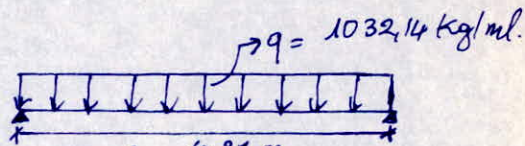 q = 1032,14 Kg/ml.